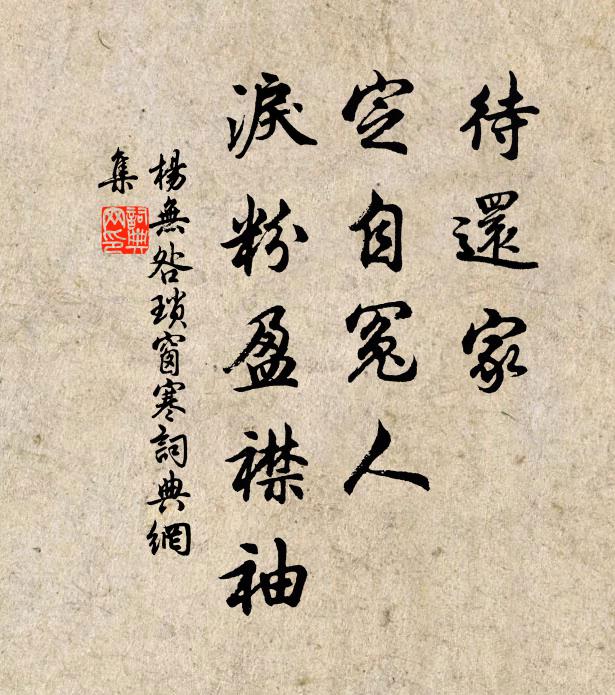 待還家
定自冤人
淚粉盈襟袖
楊無咎瑣窗寒詞典網
集
詞典網印